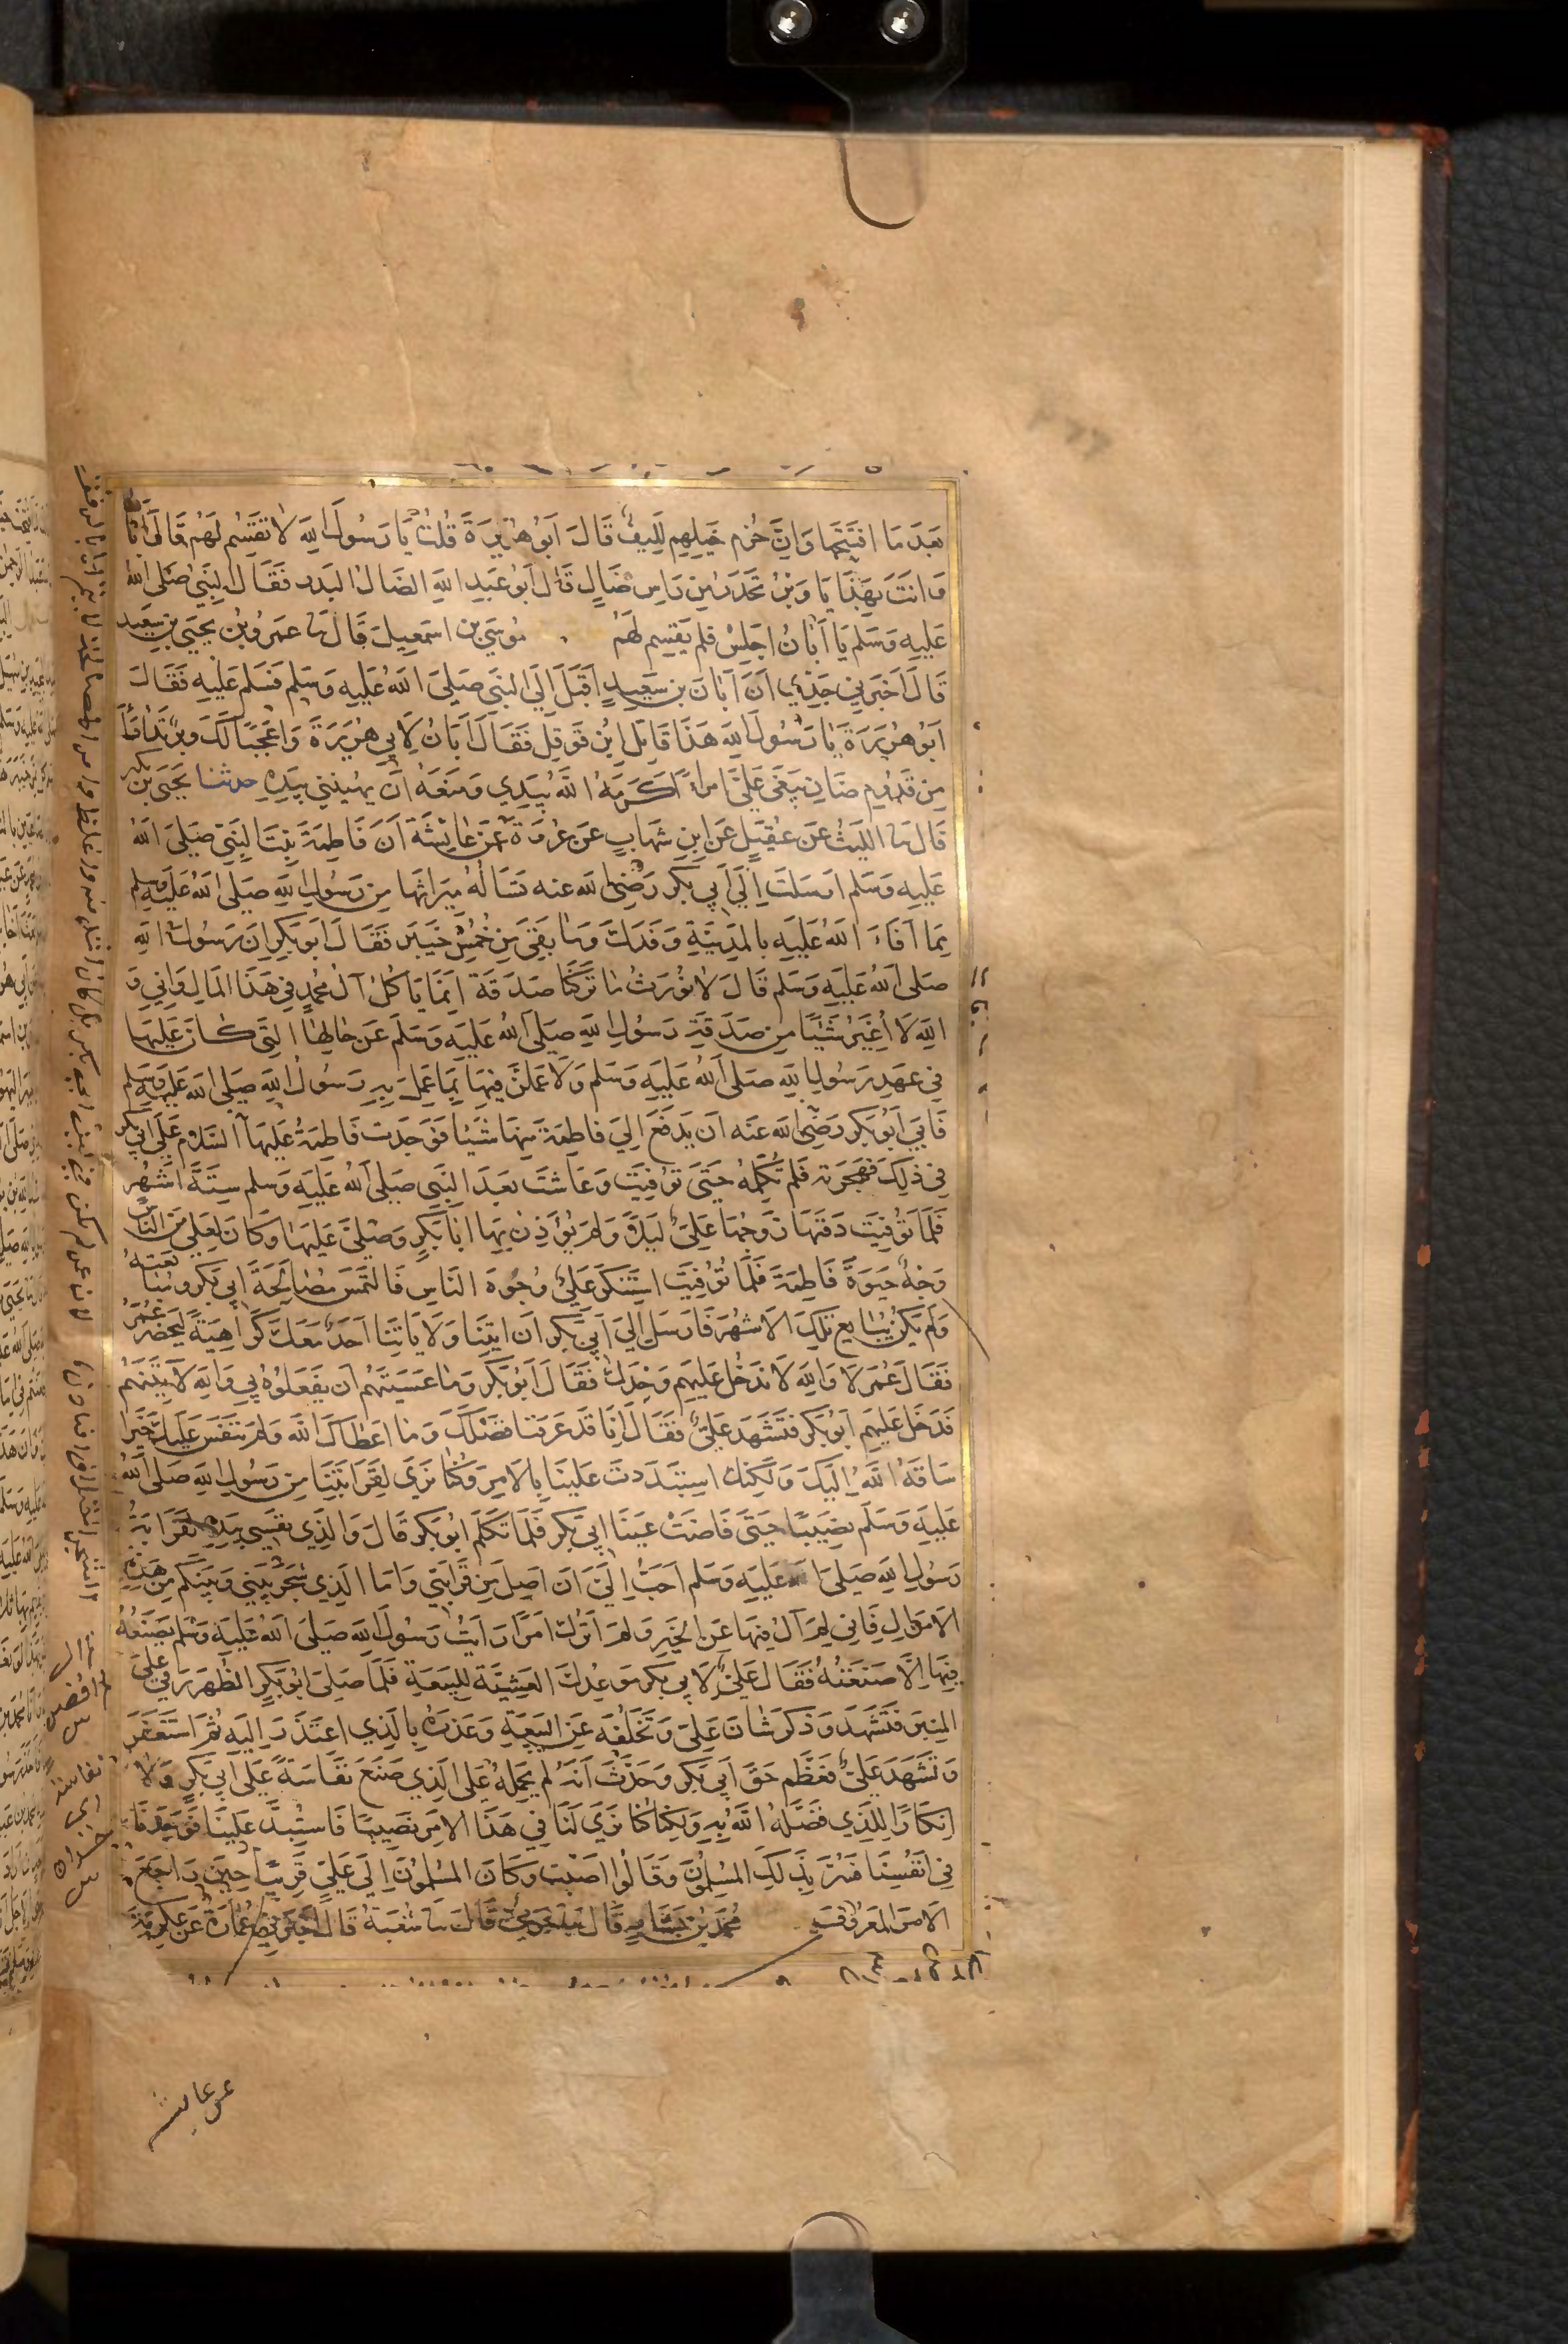 بَعْدَ مَا افْتَتَحَهَا وَاِنَّ حُزُمَ خَيْلِهِمْ لَلِيفٌ قَالَ اَبُو هُرَيْرَةَ قُلْتُ يَا رَسُولَ اللهِ لَا تَقْسِمْ لَهُمْ قَالَ اَبَانُ
وَانْتَ بِهَذَا يَا وَبْرُ تَحَدَّرَ مِنْ رَاسِ ضَالٍ قَالَ اَبُو عَبْدِ اللهِ الضَالُ السِّدْرُ فَقَالَ النَّبِيُّ صَلَّى اللهُ
عَلَيْهِ وَسَلَّمَ يَا اَبَانُ اجْلِسْ فَلَمْ يَقْسِمْ لَهُمْ مُوسَى بْنُ اسْمَعِيلَ قَالَ ثنا عَمْرُو بْنُ يَحْيَى بْنِ سَعِيدٍ
قَالَ اَخْبَرَنِي جَدِّي اَنَّ اَبَانَ بْنَ سَعِيدٍ اَقْبَلَ اِلَى النَّبِيِّ صَلَّى اللهُ عَلَيْهِ وَسَلَّمَ فَسَلَّمَ عَلَيْهِ فَقَالَ
اَبُو هُرَيْرَةَ يَا رَسُولَ اللهِ هَذَا قَاتِلُ ابْنِ قَوْقَلٍ فَقَالَ اَبَانُ لِاَبِي هُرَيْرَةَ وَاعَجَبًا لَكَ وَبْرٌ تَدَأْدَأَ
مِنْ قَدُومِ ضَانٍ يَنْعَى عَلَيَّ امْرَأً اَكْرَمَهُ اللهُ بِيَدِي وَمَنَعَهُ اَنْ يُهِينَنِي بِيَدِهِ حدثنا يَحْيَى بْنُ بكير
قَالَ ثنا اللَّيْثُ عَنْ عُقَيْلٍ عَنِ ابْنِ شِهَابٍ عَنْ عُرْوَةَ عَنْ عَائِشَةَ اَنَّ فَاطِمَةَ بِنْتَ النَّبِيِّ صَلَّى اللهُ
عَلَيْهِ وَسَلَّمَ ارْسَلَتْ اِلَى اَبِي بَكْرٍ رَضِيَ اللهُ عنه تَسْالُهُ مِيرَاثَهَا مِنْ رَسُولِ اللهِ صَلَّى اللهُ عَلَيْهِ وَسَلَّمَ
مِمَّا اَفَاءَ اللهُ عَلَيْهِ بِالْمَدِينَةِ وَفَدَكَ وَمَا بَقِيَ مِنْ خُمُسِ خَيْبَرَ فَقَالَ اَبُو بَكْرٍ اِنَّ رَسُولَ اللهِ
صَلَّى اللهُ عَلَيْهِ وَسَلَّمَ قَالَ لَا نُوْرَثُ مَا تَرَكْنَا صَدَقَةٌ اِنَّمَا يَاكُلُ آلُ مُحَمَّدٍ فِي هَذَا الْمَالِ وَاِنِّي وَ
اللهِ لَا اُغَيِّرُ شَيْئًا مِنْ صَدَقَةِ رَسُولِ اللهِ صَلَّى اللهُ عَلَيْهِ وَسَلَّمَ عَنْ حَالِهَا الَّتِي كَانَ عَلَيْهَا
فِي عَهْدِ رَسُولِ اللهِ صَلَّى اللهُ عَلَيْهِ وَسَلَّمَ وَلَاعْمَلَنَّ فِيهَا بِمَا عَمِلَ بِهِ رَسُولُ اللهِ صَلَّى اللهُ عَلَيْهِ وَسَلَّمَ
فَاَبَى اَبُو بَكْرٍ رَضِيَ اللهُ عَنْهُ اَنْ يَدْفَعَ اِلَى فَاطِمَةَ مِنْهَا شَيْئًا فَوَجَدَتْ فَاطِمَةُ عَلَيْهَا السَّلَامُ عَلَى اَبِي بَكْرٍ
فِي ذَلِكَ فَهَجَرَتْهُ فَلَمْ تُكَلِّمْهُ حَتَّى تُوُفِّيَتْ وَعَاشَتْ بَعْدَ النَّبِيِّ صَلَّى اللهُ عَلَيْهِ وَسَلَّمَ سِتَّةَ اَشْهُرٍ
فَلَمَّا تُوُفِّيَتْ دَفَنَهَا زَوْجُهَا عَلِيٌّ لَيْلًا وَلَمْ يُؤْذِنْ بِهَا اَبَا بَكْرٍ وَصَلَّى عَلَيْهَا وَكَانَ لِعَلِيٍّ مِنَ النَّاسِ
وَجْهٌ حَيَوةَ فَاطِمَةَ فَلَمَّا تُوُفِّيَتْ اسْتَنْكَرَ عَلِيٌّ وُجُوهَ النَّاسِ فَالْتَمَسَ مُصَالَحَةَ اَبِي بَكْرٍ وَمُبَايَعَتَهُ
وَلَمْ يَكُنْ يُبَايِعُ تِلْكَ الْاَشْهُرَ فَارْسَلَ اِلَى اَبِي بَكْرٍ اَنِ ائْتِنَا وَلَا يَاتِنَا اَحَدٌ مَعَكَ كَرَاهِيَةً لِيَحْضُرَ عُمَرُ
فَقَالَ عُمَرُ لَا وَاللهِ لَا تَدْخُلُ عَلَيْهِمْ وَحْدَكَ فَقَالَ اَبُو بَكْرٍ وَمَا عَسَيْتَهُمْ اَنْ يَفْعَلُوهُ بِي وَاللهِ لَآتِيَنَّهُمْ
فَدَخَلَ عَلَيْهِمْ اَبُو بَكْرٍ فَتَشَهَّدَ عَلِيٌّ فَقَالَ اِنَّا قَدْ عَرَفْنَا فَضْلَكَ وَمَا اعْطَاكَ اللهُ وَلَمْ نَنْفَسْ عَلَيْكَ خَيْرًا
سَاقَهُ اللهُ اِلَيْكَ وَلَكِنَّكَ اسْتَبْدَدْتَ عَلَيْنَا بِالْامْرِ وَكُنَّا نَرَى لِقَرَابَتِنَا مِنْ رَسُولِ اللهِ صَلَّى اللهُ
عَلَيْهِ وَسَلَّمَ نَصِيبًا حَتَّى فَاضَتْ عَيْنَا اَبِي بَكْرٍ فَلَمَّا تَكَلَّمَ ابُو بَكْرٍ قَالَ وَالَّذِي نَفْسِي بِيَدِهِ لَقَرَابَةُ
رَسُولِ اللهِ صَلَّى اللهُ عَلَيْهِ وَسَلَّمَ اَحَبُّ اِلَيَّ اَنْ اَصِلَ مِنْ قَرَابَتِي وَاَمَّا الَّذِي شَجَرَ بَيْنِي وَبَيْنَكُمْ مِنْ هَذِهِ
الْامْوَالِ فَاِنِّي لَمْ آلُ فِيهَا عَنِ الْخَيْرِ وَلَمْ اَتْرُكْ امْرًا رَايْتُ رَسُولَ اللهِ صَلَّى اللهُ عَلَيْهِ وَسَلَّمَ يَصْنَعُهُ
فِيهَا اِلَّا صَنَعْتُهُ فَقَالَ عَلِيٌّ لِاَبِي بَكْرٍ مَوْعِدُكَ الْعَشِيَّةَ لِلْبَيْعَةِ فَلَمَّا صَلَّى اَبُو بَكْرٍ الظُّهْرَ رَقِيَ عَلَى
الْمِنْبَرِ فَتَشَهَّدَ وَذَكَرَ شَانَ عَلِيٍّ وَتَخَلُّفَهُ عَنِ الْبَيْعَةِ وَعَذَرَهُ بِالَّذِي اعْتَذَرَ اِلَيْهِ ثُمَّ اسْتَغْفَرَ
وَتَشَهَّدَ عَلِيٌّ فَعَظَّمَ حَقَّ اَبِي بَكْرٍ وَحَدَّثَ اَنَّهُ لَمْ يَحْمِلْهُ عَلَى الَّذِي صَنَعَ نَفَاسَةً عَلَى اَبِي بَكْرٍ وَلَا
اِنْكَارًا لِلَّذِي فَضَّلَهُ اللهُ بِهِ وَلَكِنَّا كُنَّا نَرَى لَنَا فِي هَذَا الْامْرِ نَصِيبًا فَاسْتُبِدَّ عَلَيْنَا فَوَجَدْنَا
فِي اَنْفُسِنَا فَسُرَّ بِذَلِكَ الْمُسْلِمُونَ وَقَالُوا اَصَبْتَ وَكَانَ الْمُسْلِمُونَ اِلَى عَلِيٍّ قَرِيبًا حِينَ رَاجَعَ
الْامْرَ الْمَعْرُوفَ مُحَمَّدُ بْنُ بَشَّارٍ قَالَ حَرَمِيٌّ قَالَ ثنا شُعْبَةُ قَالَ اَخْبَرَنِي عُمَارَةُ عَنْ عِكْرِمَةَ
عن عايشه